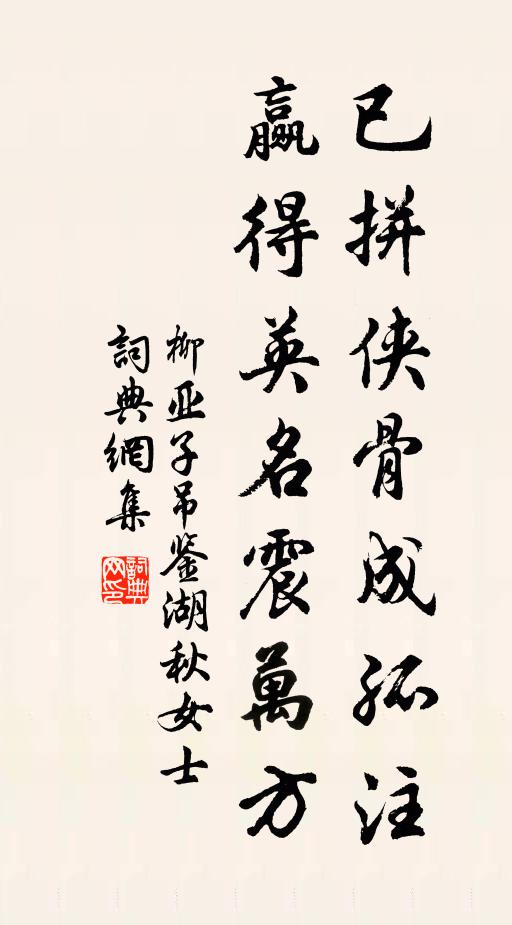 已拼侠骨成孤注
赢得英名震萬方
柳亚子吊鉴湖秋女士
詞典網集
詞典網印